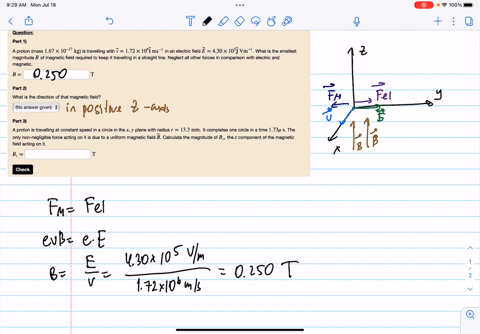 9:29 AM Mon Jul 18
100%
Question:
Part 1)
A proton (mass 1.67 × 10⁻²⁷ kg) is travelling with v⃗ = 1.72 × 10⁶ î ms⁻¹ in an electric field E⃗ = 4.30 × 10⁵ ĵ Vm⁻¹. What is the smallest
magnitude B of magnetic field required to keep it travelling in a straight line. Neglect all other forces in comparison with electric and
magnetic.
B = 0.250 T
Part 2)
What is the direction of that magnetic field?
(No answer given) in positive z-axis
Part 3)
A proton is travelling at constant speed in a circle in the x, y plane with radius r = 13.3 mm. It completes one circle in a time 1.73μ s. The
only non-negligible force acting on it is due to a uniform magnetic field B⃗. Calculate the magnitude of Bz, the z component of the magnetic
field acting on it.
Bz = T
Check
z
F⃗M F⃗el
y
v⃗ E⃗
x B⃗ B⃗
FM = Fel
evB = e·E
B = E/v = 4.30×10⁵ V/m / 1.72×10⁶ m/s = 0.250 T
1
2